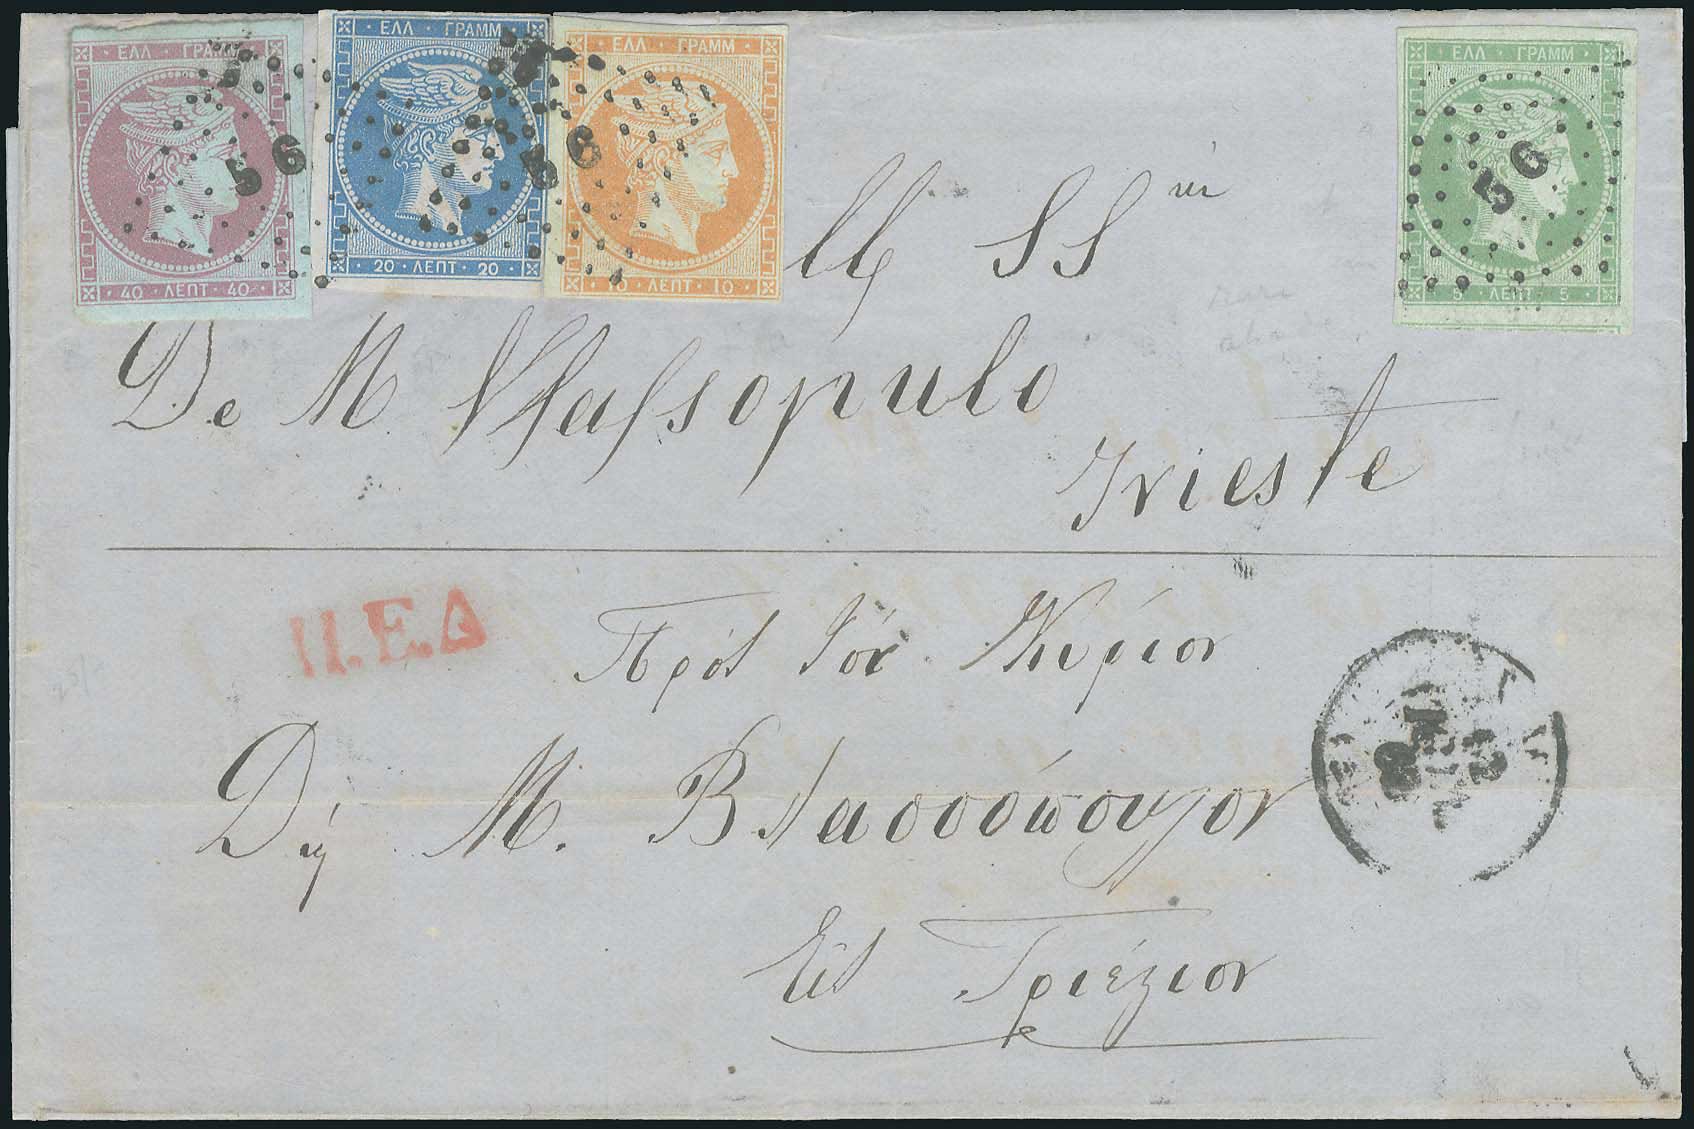 ΕΛΛ ΓΡΑΜΜ
40 ΛΕΠΤ 40
56
ΕΛΛ ΓΡΑΜΜ
20 ΛΕΠΤ 20
56
ΕΛΛ ΓΡΑΜΜ
10 ΛΕΠΤ 10
ΕΛΛ ΓΡΑΜΜ
5 ΛΕΠΤ 5
56
De M Vlassopulo
Trieste
Π.Ε.Δ
Πρός τόν Κύριον
Δή Μ. Βλασσόπουλον
Εἰς Τριέστιον